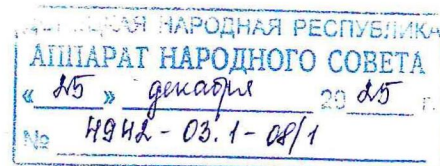 НАРОДНАЯ РЕСПУБЛИКА
АППАРАТ НАРОДНОГО СОВЕТА
« 25 » декабря 20 25 г.
№ 4942 - 03.1 - 08/1